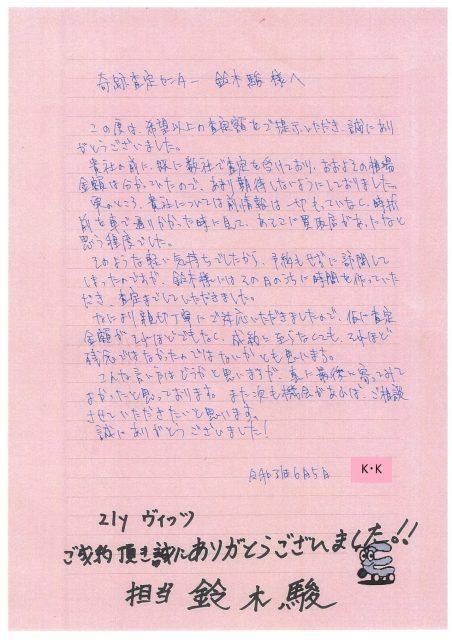 奇跡査定センター 鈴木駿 様へ
この度は、希望以上の査定額をご提示いただき、誠にあり
がとうございました。
貴社の前に、既に数社で査定を受けており、おおよその相場
金額は分かっていたので、あまり期待しないようにしておりました。
実のところ、貴社については前情報は一切もっていなく、時折
前を車で通りかかった時に見て、あそこに買取店があったなと
思う程度でした。
そのような軽い気持ちでしたから、予約もせずに訪問して
しまったのですが、鈴木様にはその日のうちに時間を作っていた
だき、査定までしていただきました。
なにより親切丁寧にご対応いただきましたので、仮に査定
金額がそれほどでもなく、成約に至らなくても、それほど
残念ではなかったのではないかとも思います。
こんな言い方はどうかと思いますが、車に最後に寄ってみて
よかったと思っております。また次も機会があれば、ご相談
させていただきたいと思います。
誠にありがとうございました！
令和3年6月5日 K・K
21y ヴィッツ
ご成約頂き誠にありがとうございました!!
担当 鈴木駿